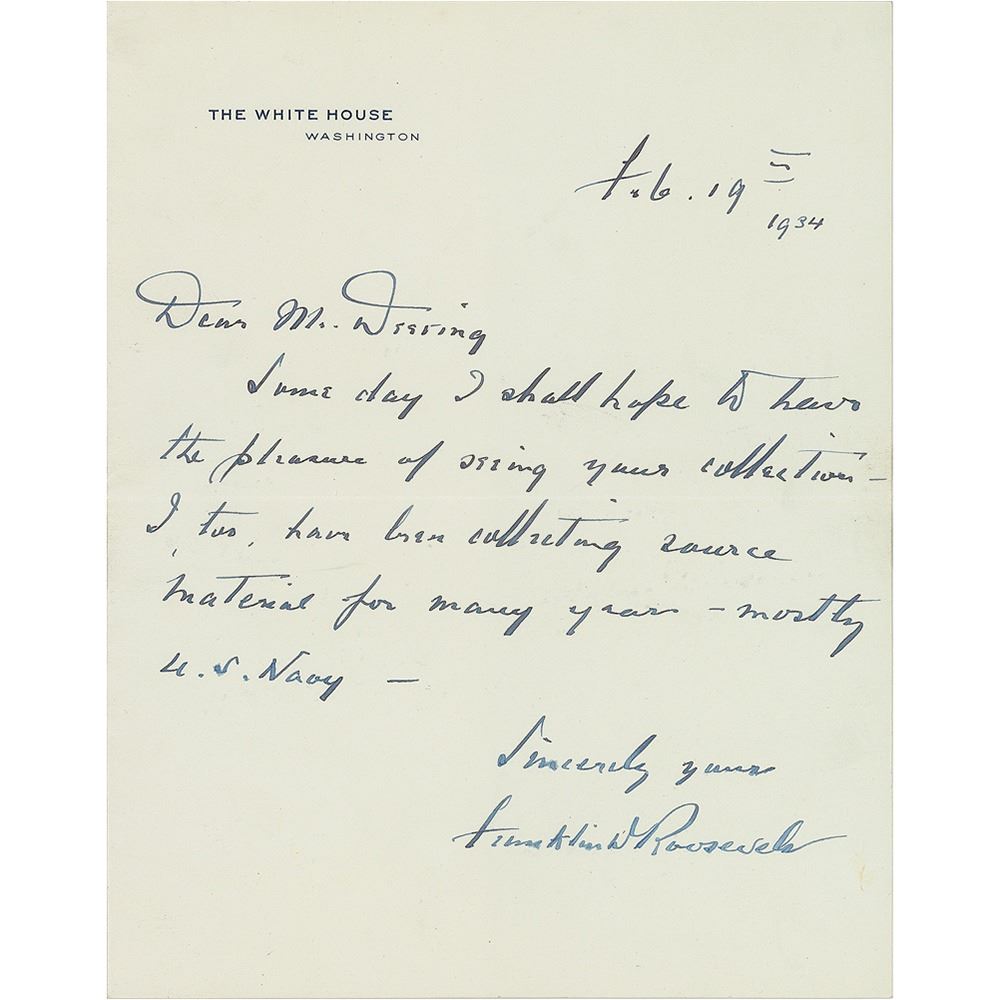 THE WHITE HOUSE
WASHINGTON
Feb. 19
1934
Dear Mr. Deering
Some day I shall hope to have
the pleasure of seeing your collection –
I, too, have been collecting source
material for many years – mostly
U.S. Navy –
Sincerely yours
Franklin D Roosevelt